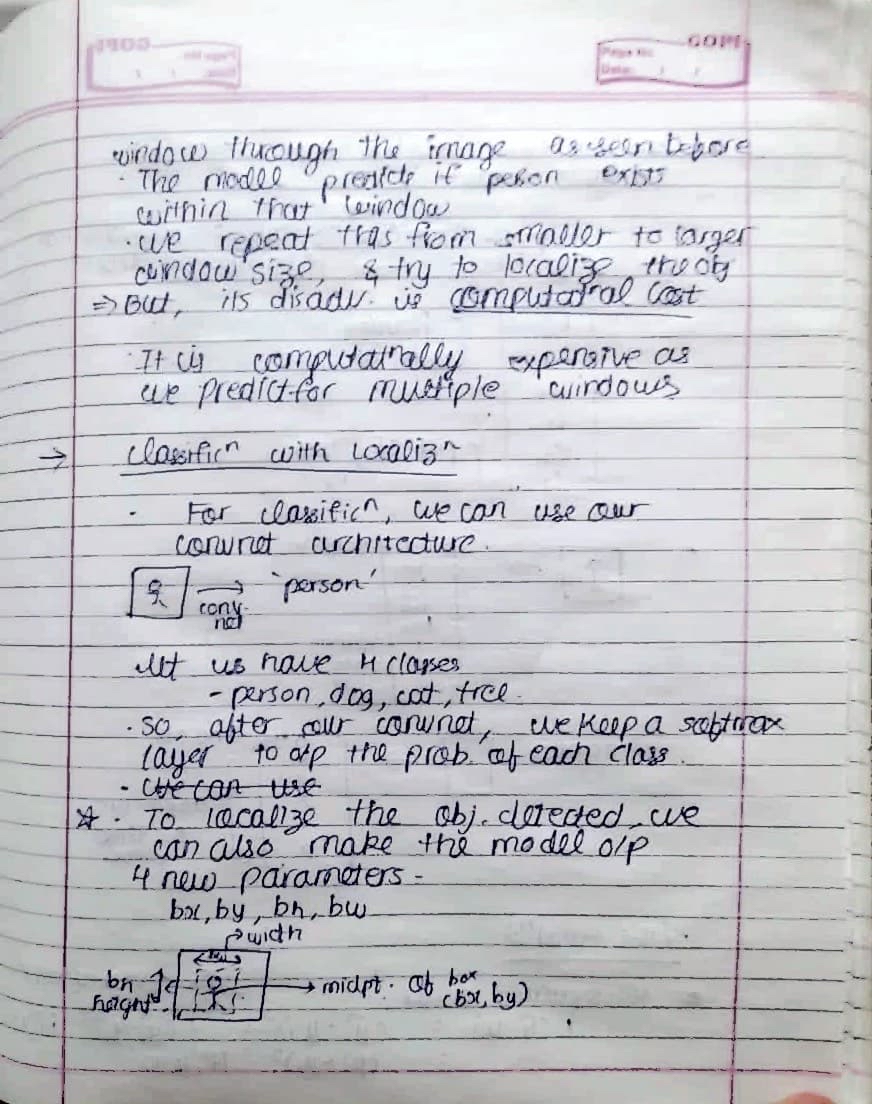 GOPI
Page No.
Date: / /
window through the image as seen before
· The modell predicts if person exists
within that window
· we repeat this from smaller to larger
window size, & try to localize the obj
⇒ But, its disadv. is computatnal cost
· It is computatnally expensive as
we predict for multiple windows
→ Classificn with Localizn
· For classificn, we can use our
convnet architecture.
→ 'person'
conv.
net
Let us have 4 classes
- person, dog, cat, tree.
· So, after our convnet, we keep a softmax
layer to o/p the prob. of each class.
- We can use
☆ · To localize the obj. detected, we
can also make the model o/p
4 new parameters -
bx, by, bh, bw
→ width
bw
bh
height
→ midpt. of box
(bx, by)